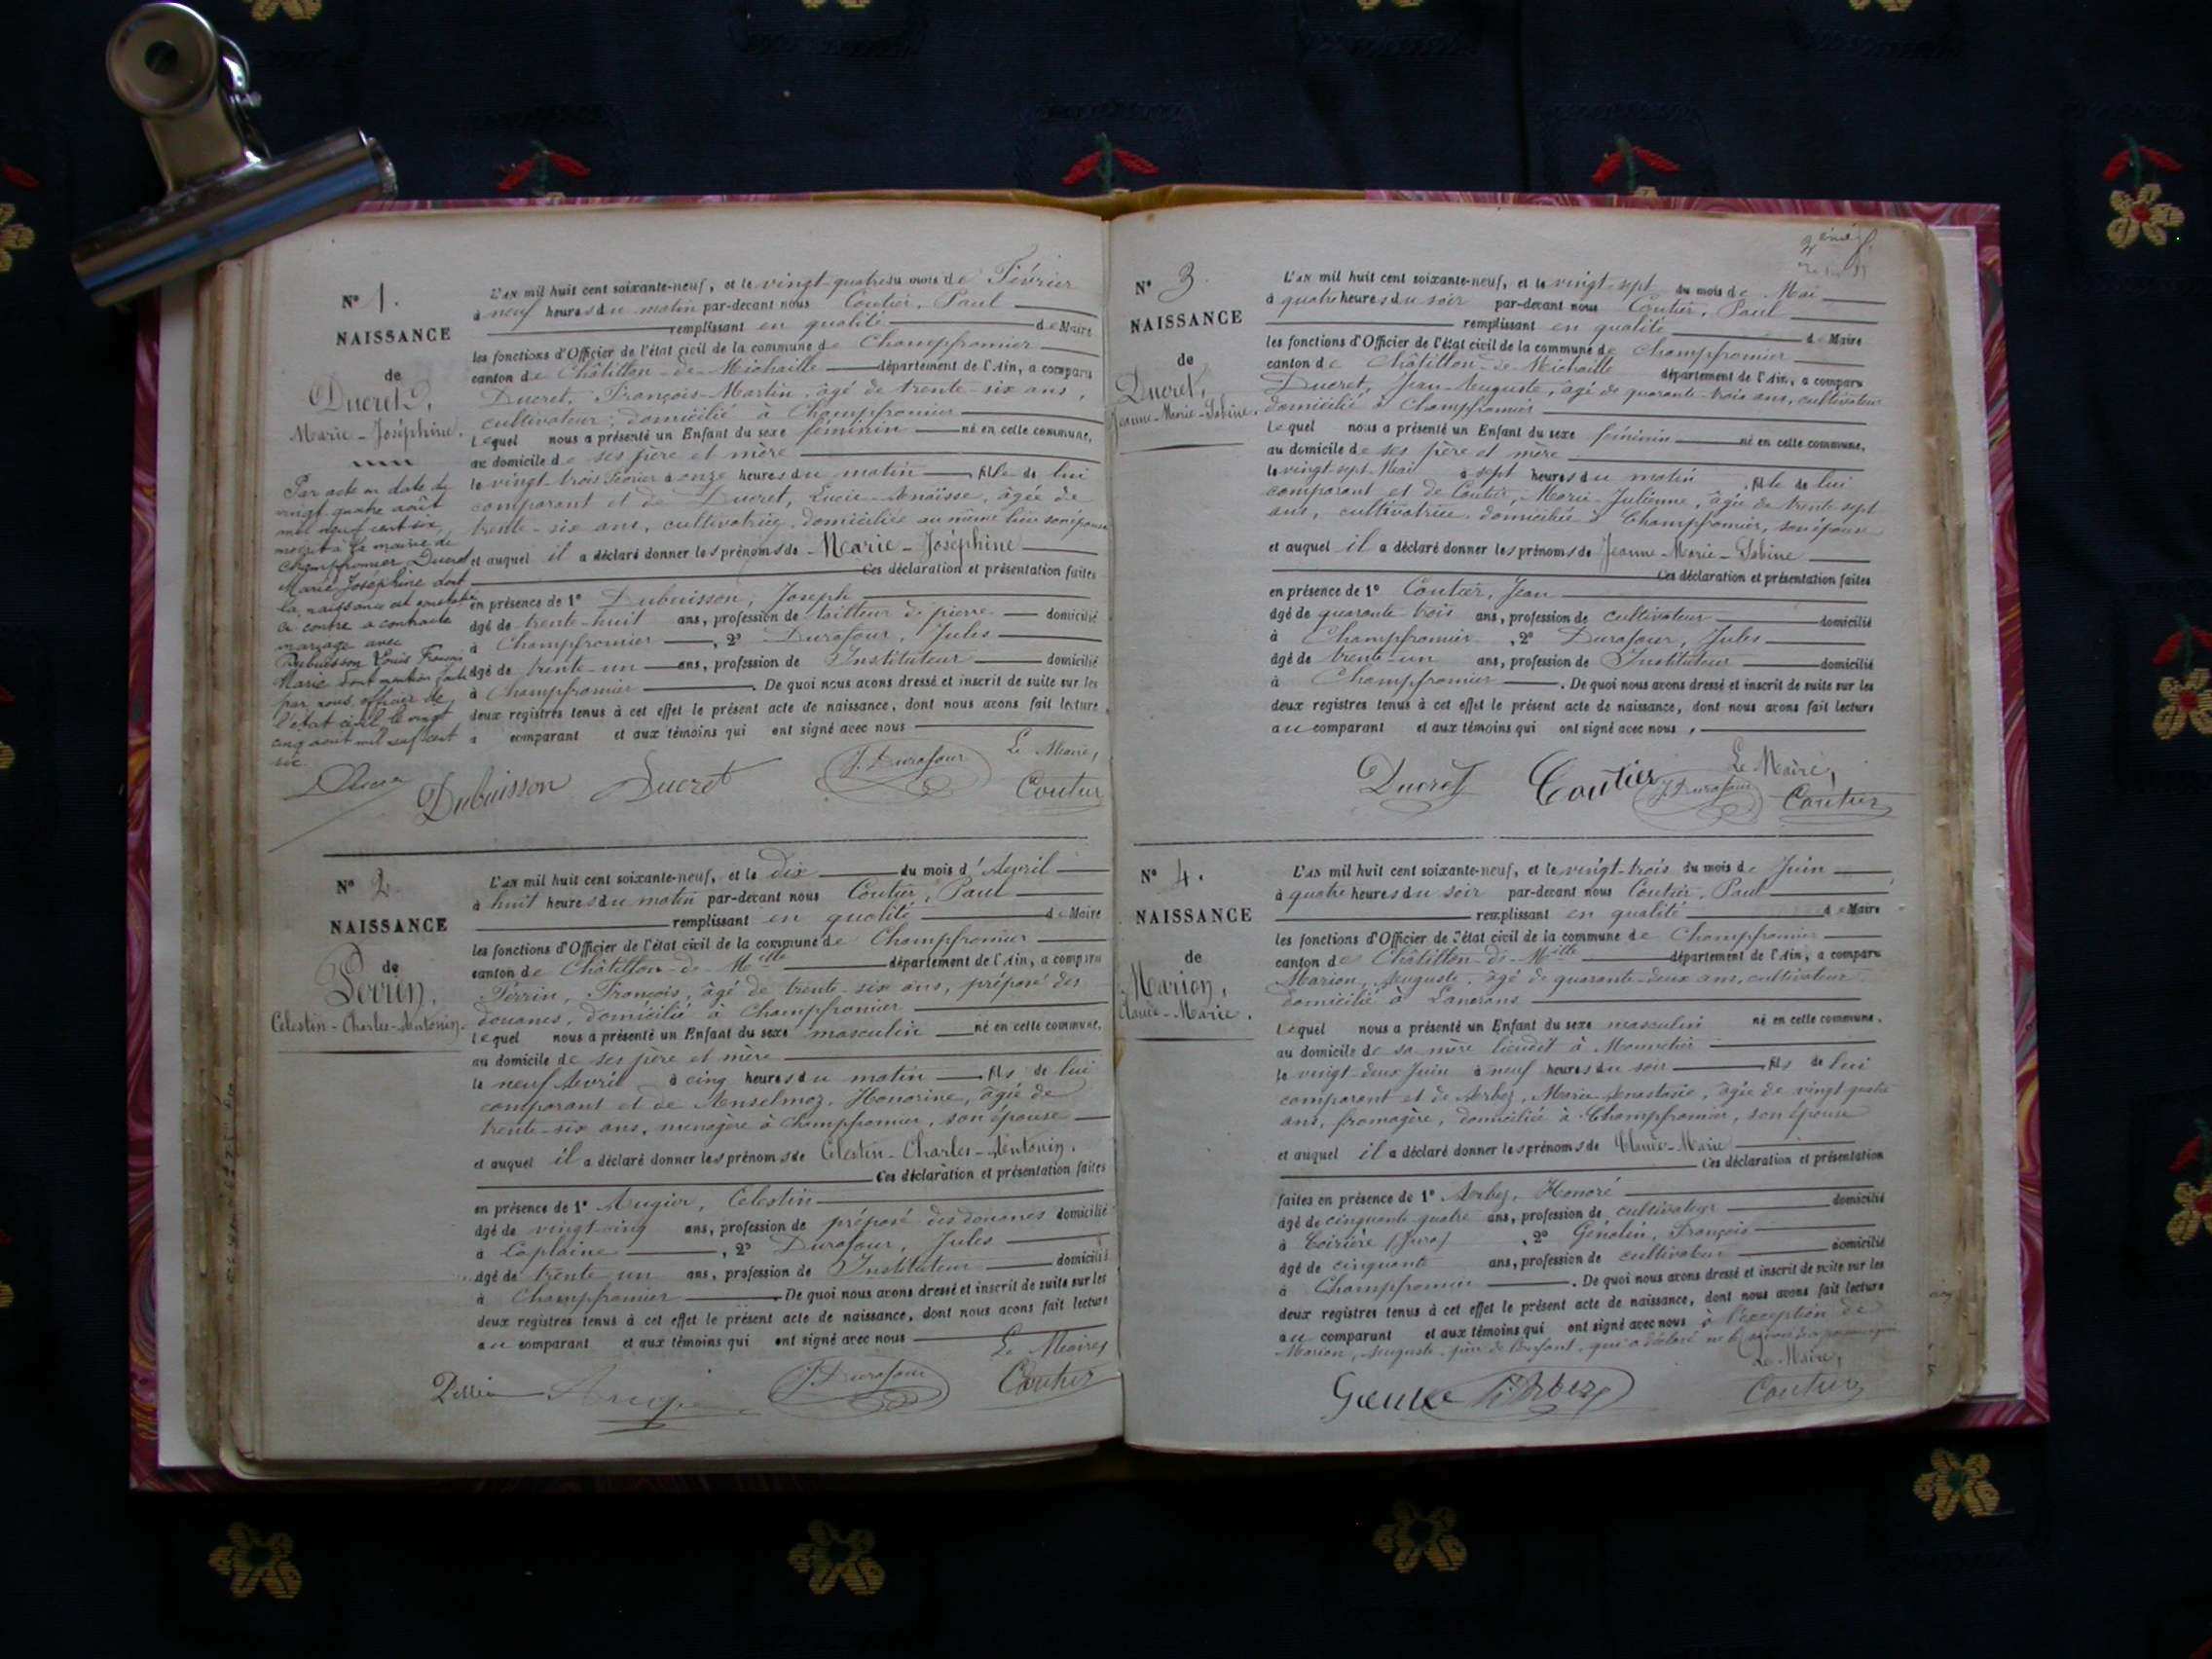 N° 1.
NAISSANCE
de
Ducret,
Marie-Joséphine.
Par acte en date du
vingt-quatre août
mil neuf cent six,
à la mairie de
Champfromier, Ducret
Marie Joséphine dont
la naissance est constatée
ci contre a contracté
mariage avec
Dubuisson Louis François
Marie dont mention faite
par nous, officier de
l'état civil le vingt
cinq août mil neuf cent
six.
L'AN mil huit cent soixante-neuf, et le vingt-quatre du mois de Février
à neuf heures du matin par-devant nous Coutier, Paul
remplissant en qualité de Maire
les fonctions d'Officier de l'état civil de la commune de Champfromier
canton de Châtillon-de-Michaille département de l'Ain, a comparu
Ducret, François-Martin, âgé de trente-six ans,
cultivateur, domicilié à Champfromier
Lequel nous a présenté un Enfant du sexe féminin né en cette commune,
au domicile de ses père et mère
le vingt-trois Février à onze heures du matin fille de lui
comparant et de Ducret, Lucie-Anaïsse, âgée de
trente-six ans, cultivatrice, domiciliée au même lieu son épouse
et auquel il a déclaré donner les prénoms de Marie-Joséphine
Ces déclaration et présentation faites
en présence de 1° Dubuisson, Joseph
âgé de trente-huit ans, profession de tailleur de pierre domicilié
à Champfromier, 2° Durafour, Jules
âgé de trente-un ans, profession de Instituteur domicilié
à Champfromier. De quoi nous avons dressé et inscrit de suite sur les
deux registres tenus à cet effet le présent acte de naissance, dont nous avons fait lecture
a comparant et aux témoins qui ont signé avec nous
Le Maire,
Dubuisson Ducret J. Durafour Coutier
N° 2.
NAISSANCE
de
Perrin,
Celestin-Charles-Antonin.
L'AN mil huit cent soixante-neuf, et le dix du mois d'Avril
à huit heures du matin par-devant nous Coutier, Paul
remplissant en qualité de Maire
les fonctions d'Officier de l'état civil de la commune de Champfromier
canton de Châtillon-de-Mille département de l'Ain, a comparu
Perrin, François, âgé de trente-six ans, préposé des
douanes, domicilié à Champfromier
Lequel nous a présenté un Enfant du sexe masculin né en cette commune,
au domicile de ses père et mère
le neuf Avril à cinq heures du matin fils de lui
comparant et de Anselmoz, Honorine, âgée de
trente-six ans, ménagère à Champfromier, son épouse
et auquel il a déclaré donner les prénoms de Celestin-Charles-Antonin.
Ces déclaration et présentation faites
en présence de 1° Augier, Celestin
âgé de vingt-cinq ans, profession de préposé des douanes domicilié
à Laplaine, 2° Durafour, Jules
âgé de trente un ans, profession de Instituteur domicilié
à Champfromier. De quoi nous avons dressé et inscrit de suite sur les
deux registres tenus à cet effet le présent acte de naissance, dont nous avons fait lecture
au comparant et aux témoins qui ont signé avec nous
Le Maire,
J. Durafour Coutier
N° 3.
NAISSANCE
de
Ducret,
Jeanne-Marie-Sabine.
L'AN mil huit cent soixante-neuf, et le vingt-sept du mois de Mai
à quatre heures du soir par-devant nous Coutier, Paul
remplissant en qualité de Maire
les fonctions d'Officier de l'état civil de la commune de Champfromier
canton de Châtillon-de-Michaille département de l'Ain, a comparu
Ducret, Jean-Auguste, âgé de quarante-trois ans, cultivateur
domicilié à Champfromier
Lequel nous a présenté un Enfant du sexe féminin né en cette commune,
au domicile de ses père et mère
le vingt-sept Mai à sept heures du matin, fille de lui
comparant et de Coutier, Marie-Julienne, âgée de trente-sept
ans, cultivatrice, domiciliée à Champfromier, son épouse
et auquel il a déclaré donner les prénoms de Jeanne-Marie-Sabine
Ces déclaration et présentation faites
en présence de 1° Coutier, Jean
âgé de quarante-trois ans, profession de cultivateur domicilié
à Champfromier, 2° Durafour, Jules
âgé de trente-un ans, profession de Instituteur domicilié
à Champfromier. De quoi nous avons dressé et inscrit de suite sur les
deux registres tenus à cet effet le présent acte de naissance, dont nous avons fait lecture
au comparant et aux témoins qui ont signé avec nous,
Le Maire,
Ducret Coutier J. Durafour Coutier
N° 4.
NAISSANCE
de
Marion,
Claude-Marie.
L'AN mil huit cent soixante-neuf, et le vingt-trois du mois de Juin
à quatre heures du soir par-devant nous Coutier, Paul
remplissant en qualité de Maire
les fonctions d'Officier de l'état civil de la commune de Champfromier
canton de Châtillon-de-Mille département de l'Ain, a comparu
Marion, Auguste, âgé de quarante-deux ans, cultivateur
domicilié à Lancrans
Lequel nous a présenté un Enfant du sexe masculin né en cette commune,
au domicile de sa mère lieudit à Monnetier
le vingt-deux Juin à neuf heures du soir fils de lui
comparant et de Arbez, Marie Anastasie, âgée de vingt-quatre
ans, fromagère, domiciliée à Champfromier, son épouse
et auquel il a déclaré donner les prénoms de Claude-Marie
Ces déclaration et présentation
faites en présence de 1° Arbez, Honoré
âgé de cinquante-quatre ans, profession de cultivateur domicilié
à Coirière (Jura), 2° Génolin, François
âgé de cinquante ans, profession de cultivateur domicilié
à Champfromier. De quoi nous avons dressé et inscrit de suite sur les
deux registres tenus à cet effet le présent acte de naissance, dont nous avons fait lecture
au comparant et aux témoins qui ont signé avec nous à l'exception de
Marion, Auguste, père de l'enfant, qui a déclaré ne le
Le Maire,
Arbez Coutier